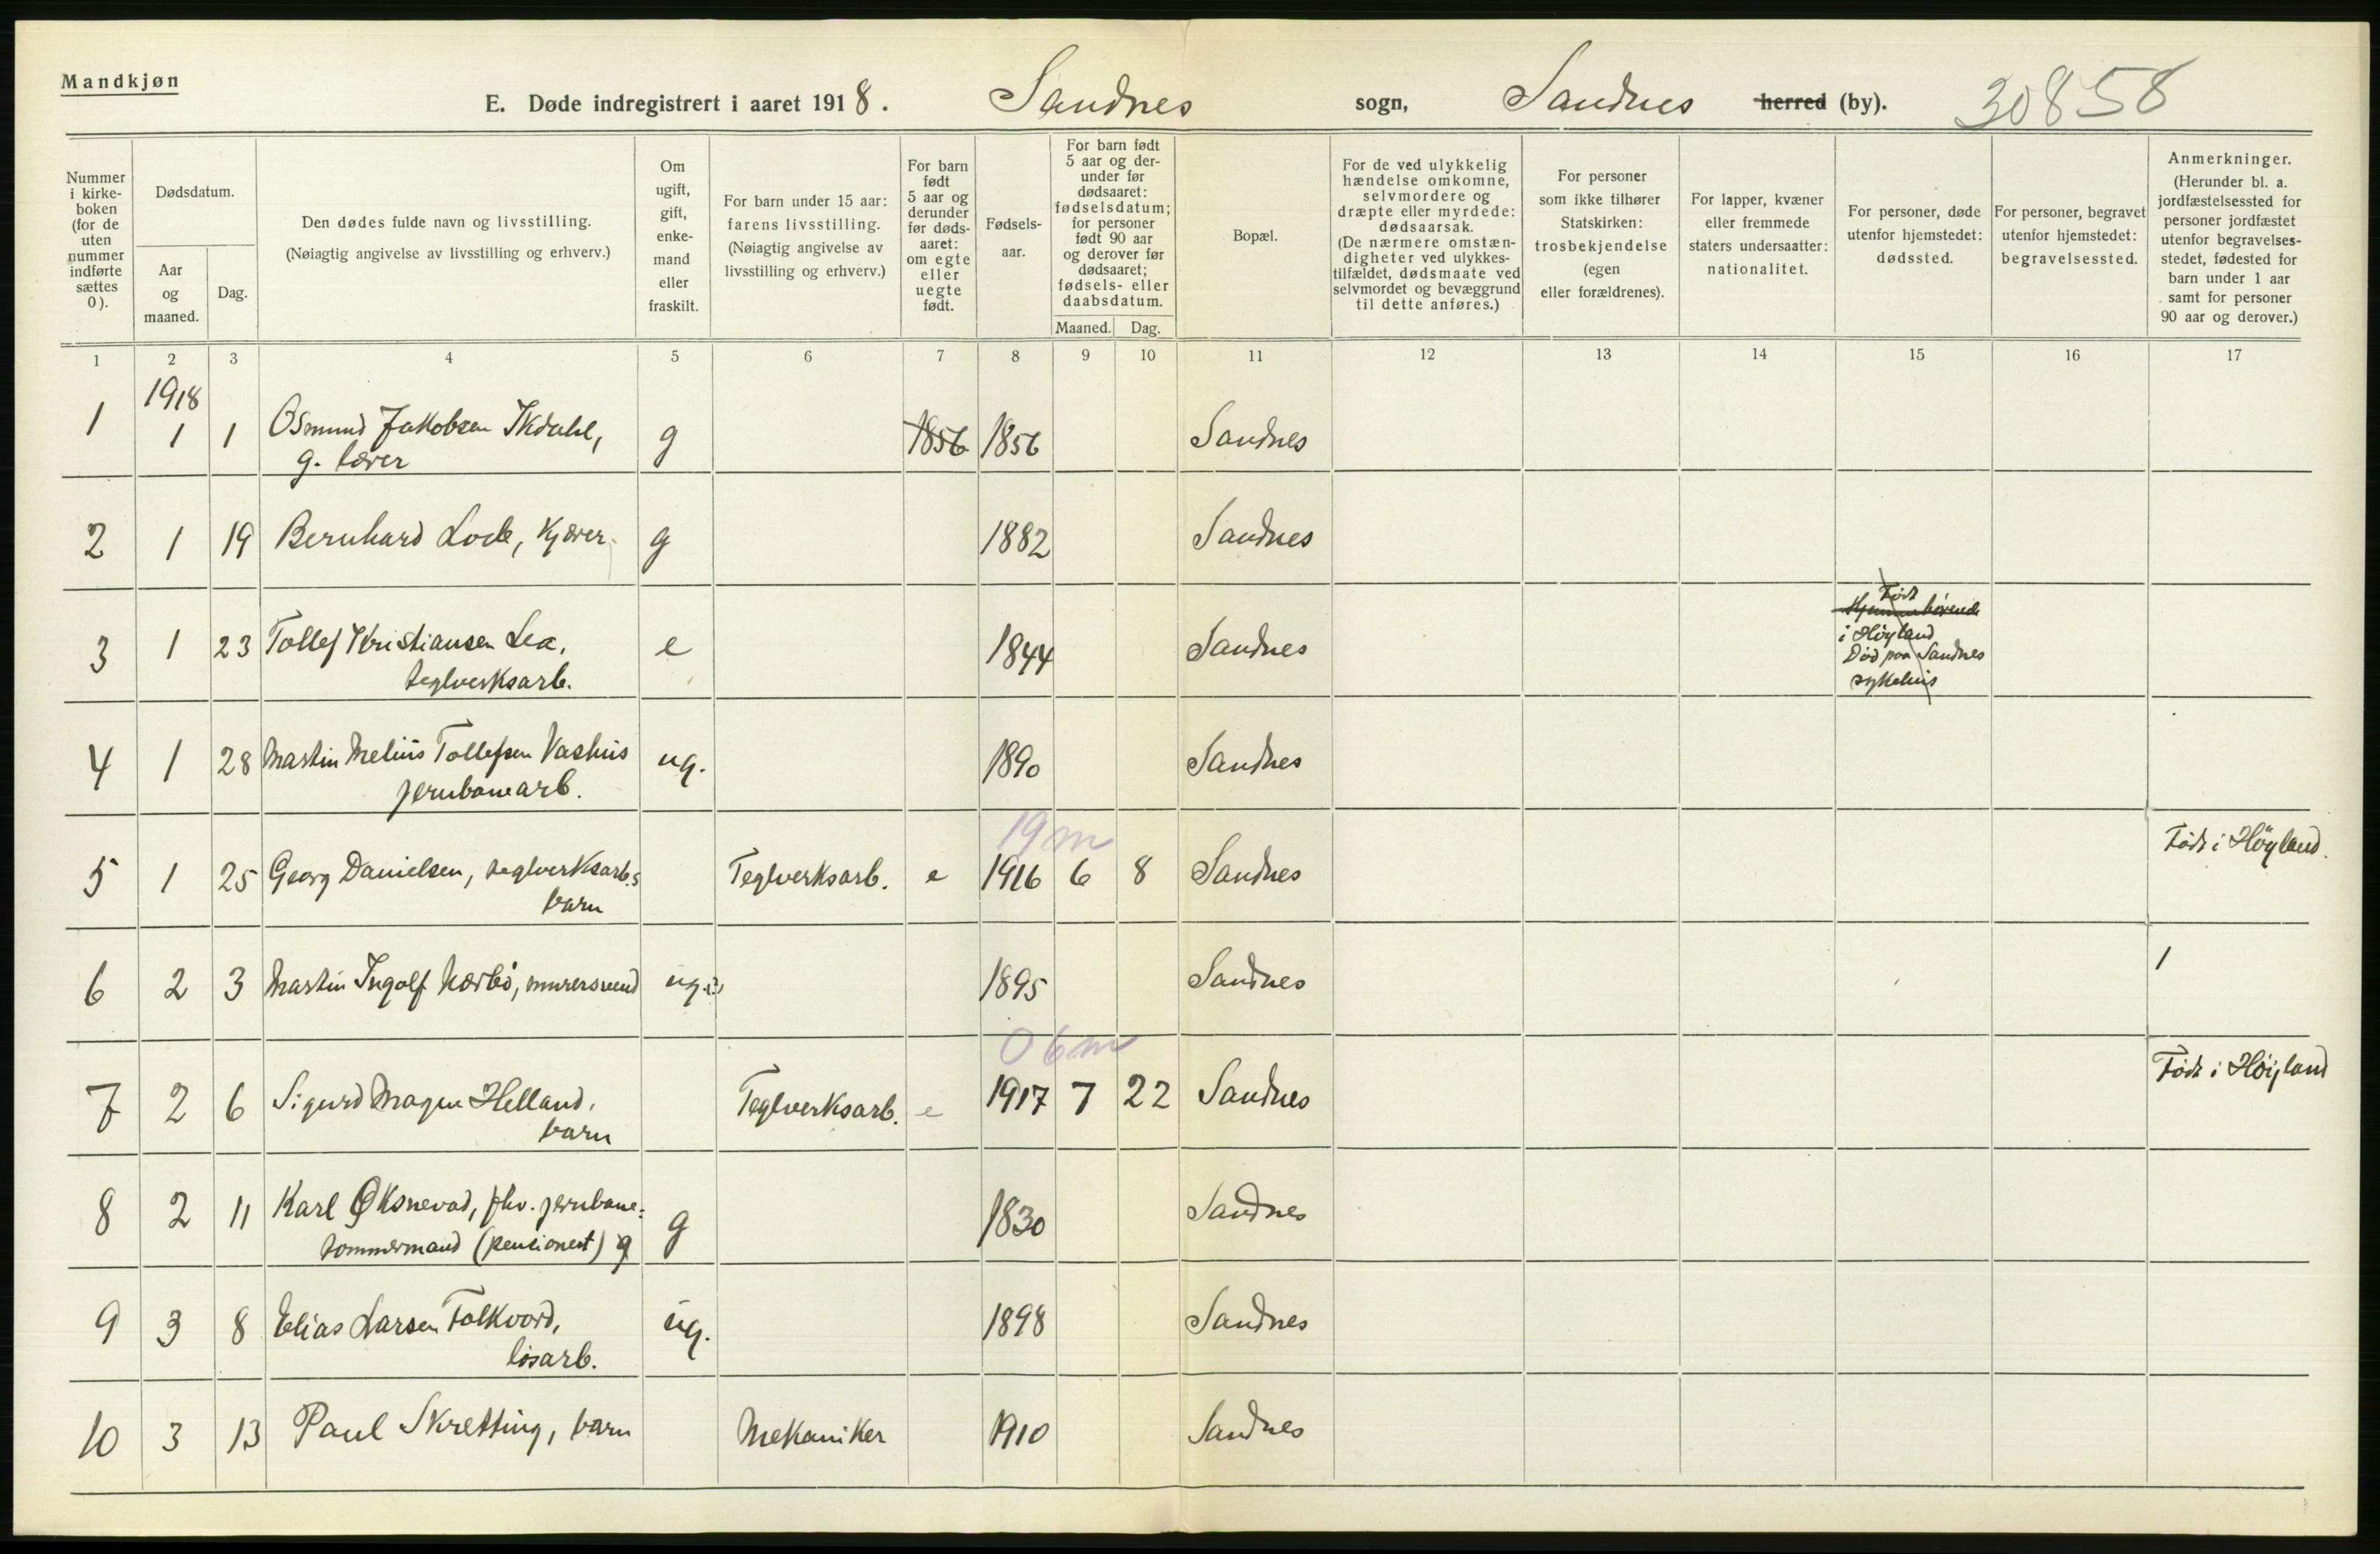 Mandkjøn
E. Døde indregistrert i aaret 1918. Sandnes sogn, Sandnes herred (by). 30858
Nummer i kirke- boken (for de uten nummer indførte sættes 0).
Dødsdatum.
Aar og maaned.
Dag.
Den dødes fulde navn og livsstilling.
(Nøiagtig angivelse av livsstilling og erhverv.)
Om ugift, gift, enke- mand eller fraskilt.
For barn under 15 aar: farens livsstilling. (Nøiagtig angivelse av livsstilling og erhverv.)
For barn født 5 aar og derunder før døds- aaret: om egte eller uegte født.
Fødsels- aar.
For barn født 5 aar og der- under før dødsaaret: fødselsdatum; for personer født 90 aar og derover før dødsaaret; fødsels- eller daabsdatum.
Maaned. Dag.
Bopæl.
For de ved ulykkelig hændelse omkomne, selvmordere og dræpte eller myrdede: dødsaarsak. (De nærmere omstæn- digheter ved ulykkes- tilfældet, dødsmaate ved selvmordet og bevæggrund til dette anføres.)
For personer som ikke tilhører Statskirken: trosbekjendelse (egen eller forældrenes).
For lapper, kvæner eller fremmede staters undersaatter: nationalitet.
For personer, døde utenfor hjemstedet: dødssted.
For personer, begravet utenfor hjemstedet: begravelsessted.
Anmerkninger. (Herunder bl. a. jordfæstelsessted for personer jordfæstet utenfor begravelses- stedet, fødested for barn under 1 aar samt for personer 90 aar og derover.)
1 2 3 4 5 6 7 8 9 10 11 12 13 14 15 16 17
1918
1 1 1 Osmund Jakobsen g 1856 1856 Sandnes
2 1 19 Bernhard Lode, g 1882 Sandnes
Født
i Høyland
Død paa Sandnes
sykehus
3 1 23 Tollef Kristiansen Lea, e 1844 Sandnes
teglverksarb.
4 1 28 Martin Melius Tollefsen Vashus ug. 1890 Sandnes
jernbanearb.
19m
5 1 25 Georg Danielsen, teglverksarb.s Teglverksarb. e 1916 6 8 Sandnes Født i Høyland.
barn
6 2 3 Martin Ingolf Nærbø, murersvend ug. 1895 Sandnes 1
06m
7 2 6 Sigurd Magnu Helland, Teglverksarb. e 1917 7 22 Sandnes Født i Høiland
barn
8 2 11 Karl Øksnevad, fhv. jernbane= g 1830 Sandnes
tømmermand (pensionert) g
9 3 8 Elias Larsen Folkvord, ug. 1898 Sandnes
løsarb.
10 3 13 Paul Skretting, barn Mekaniker 1910 Sandnes